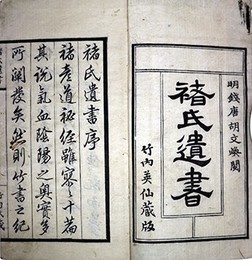 明錢唐胡文煥閱
褚氏遺書
竹内英仙藏版
褚氏遺書序
褚彦道秘經雖寥々十篇
其説氣血陰陽之奥實多
所闡發矣然則竹書之紀